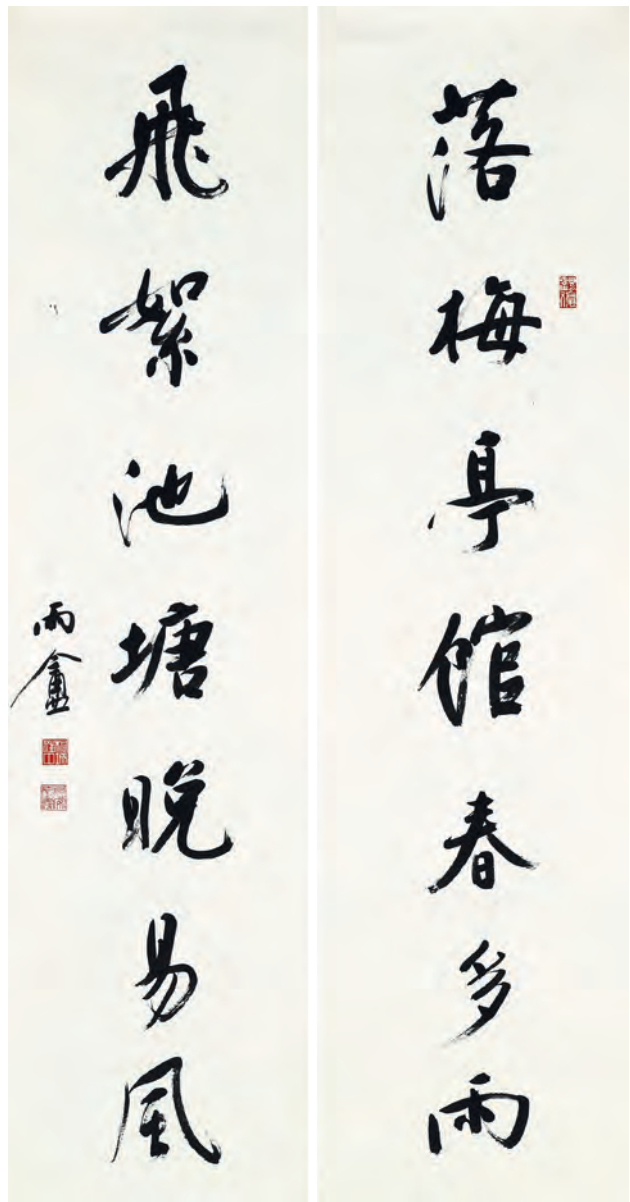 落梅亭館春多雨
飛絮池塘晚易風
雨盦